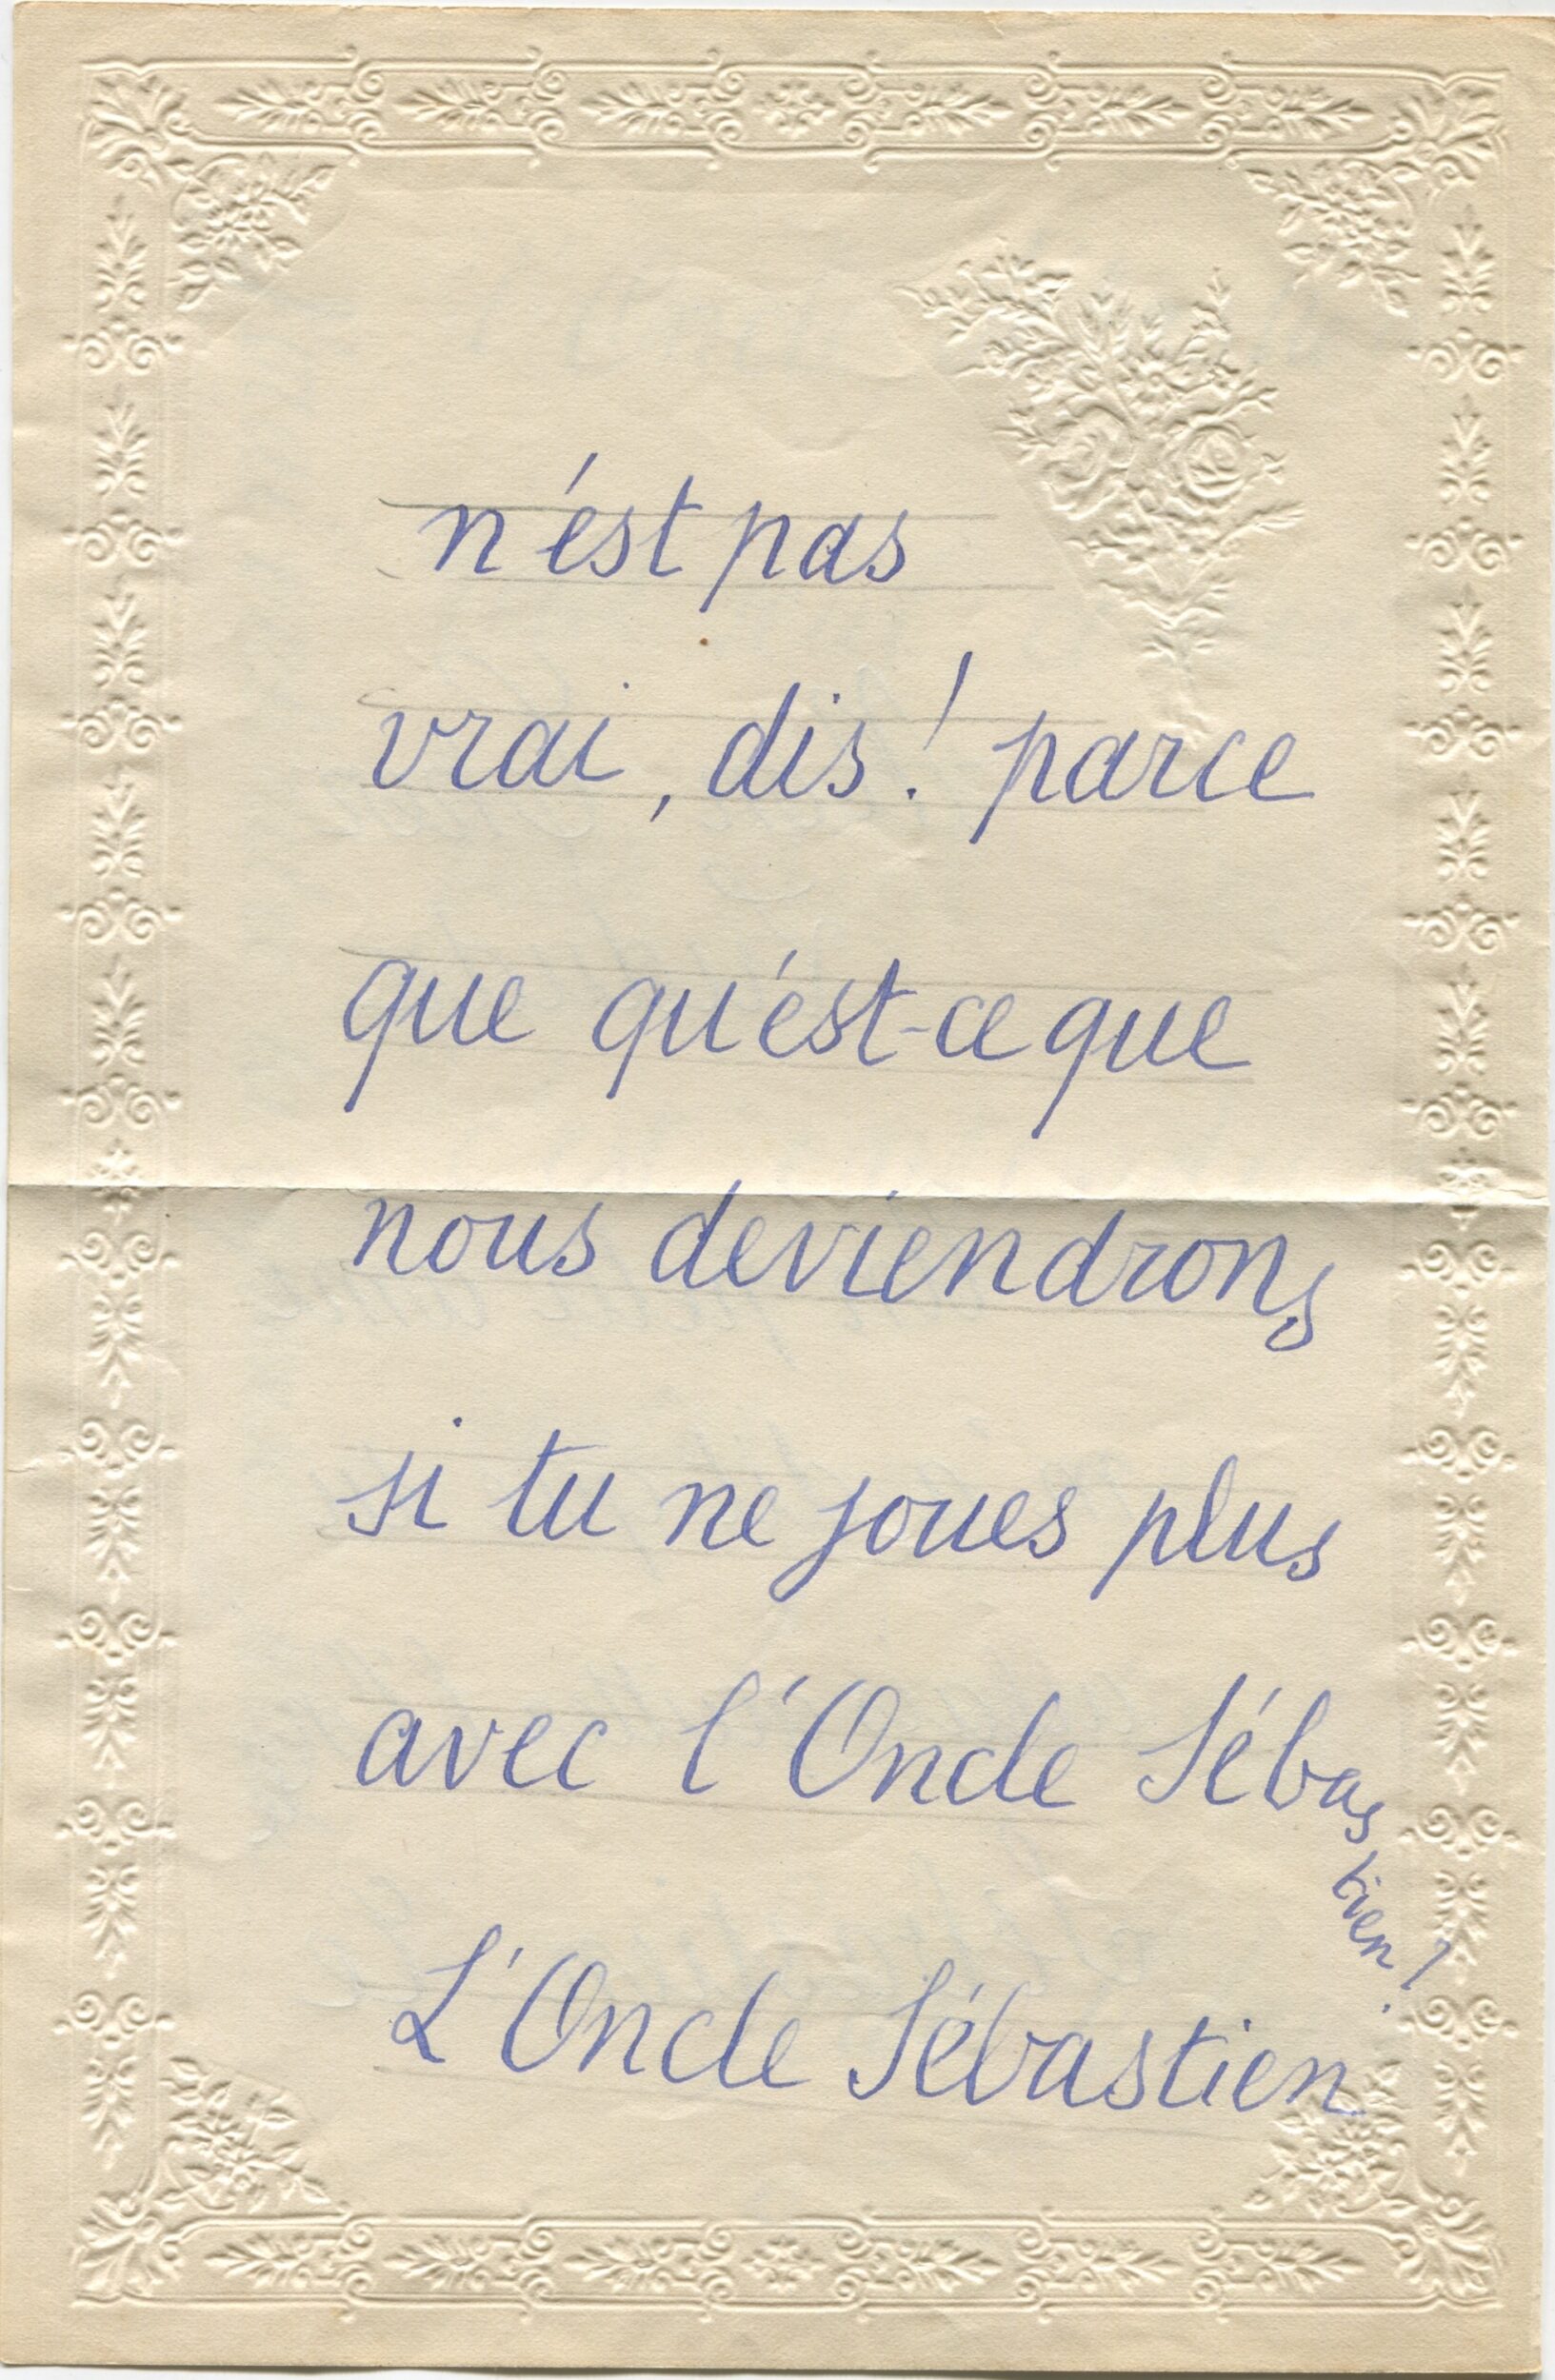 n'est pas
vrai, dis! parce
que qu'est-ce que
nous deviendrons
si tu ne joues plus
avec l'Oncle Sébastien!
L'Oncle Sébastien